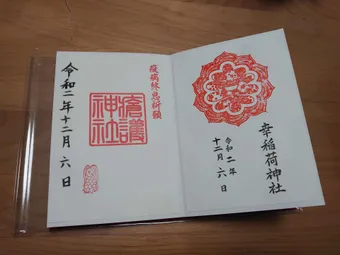 幸稲荷神社
令和二年
十二月六日
疫病終息祈願
瘡護
神社
令和二年十二月六日